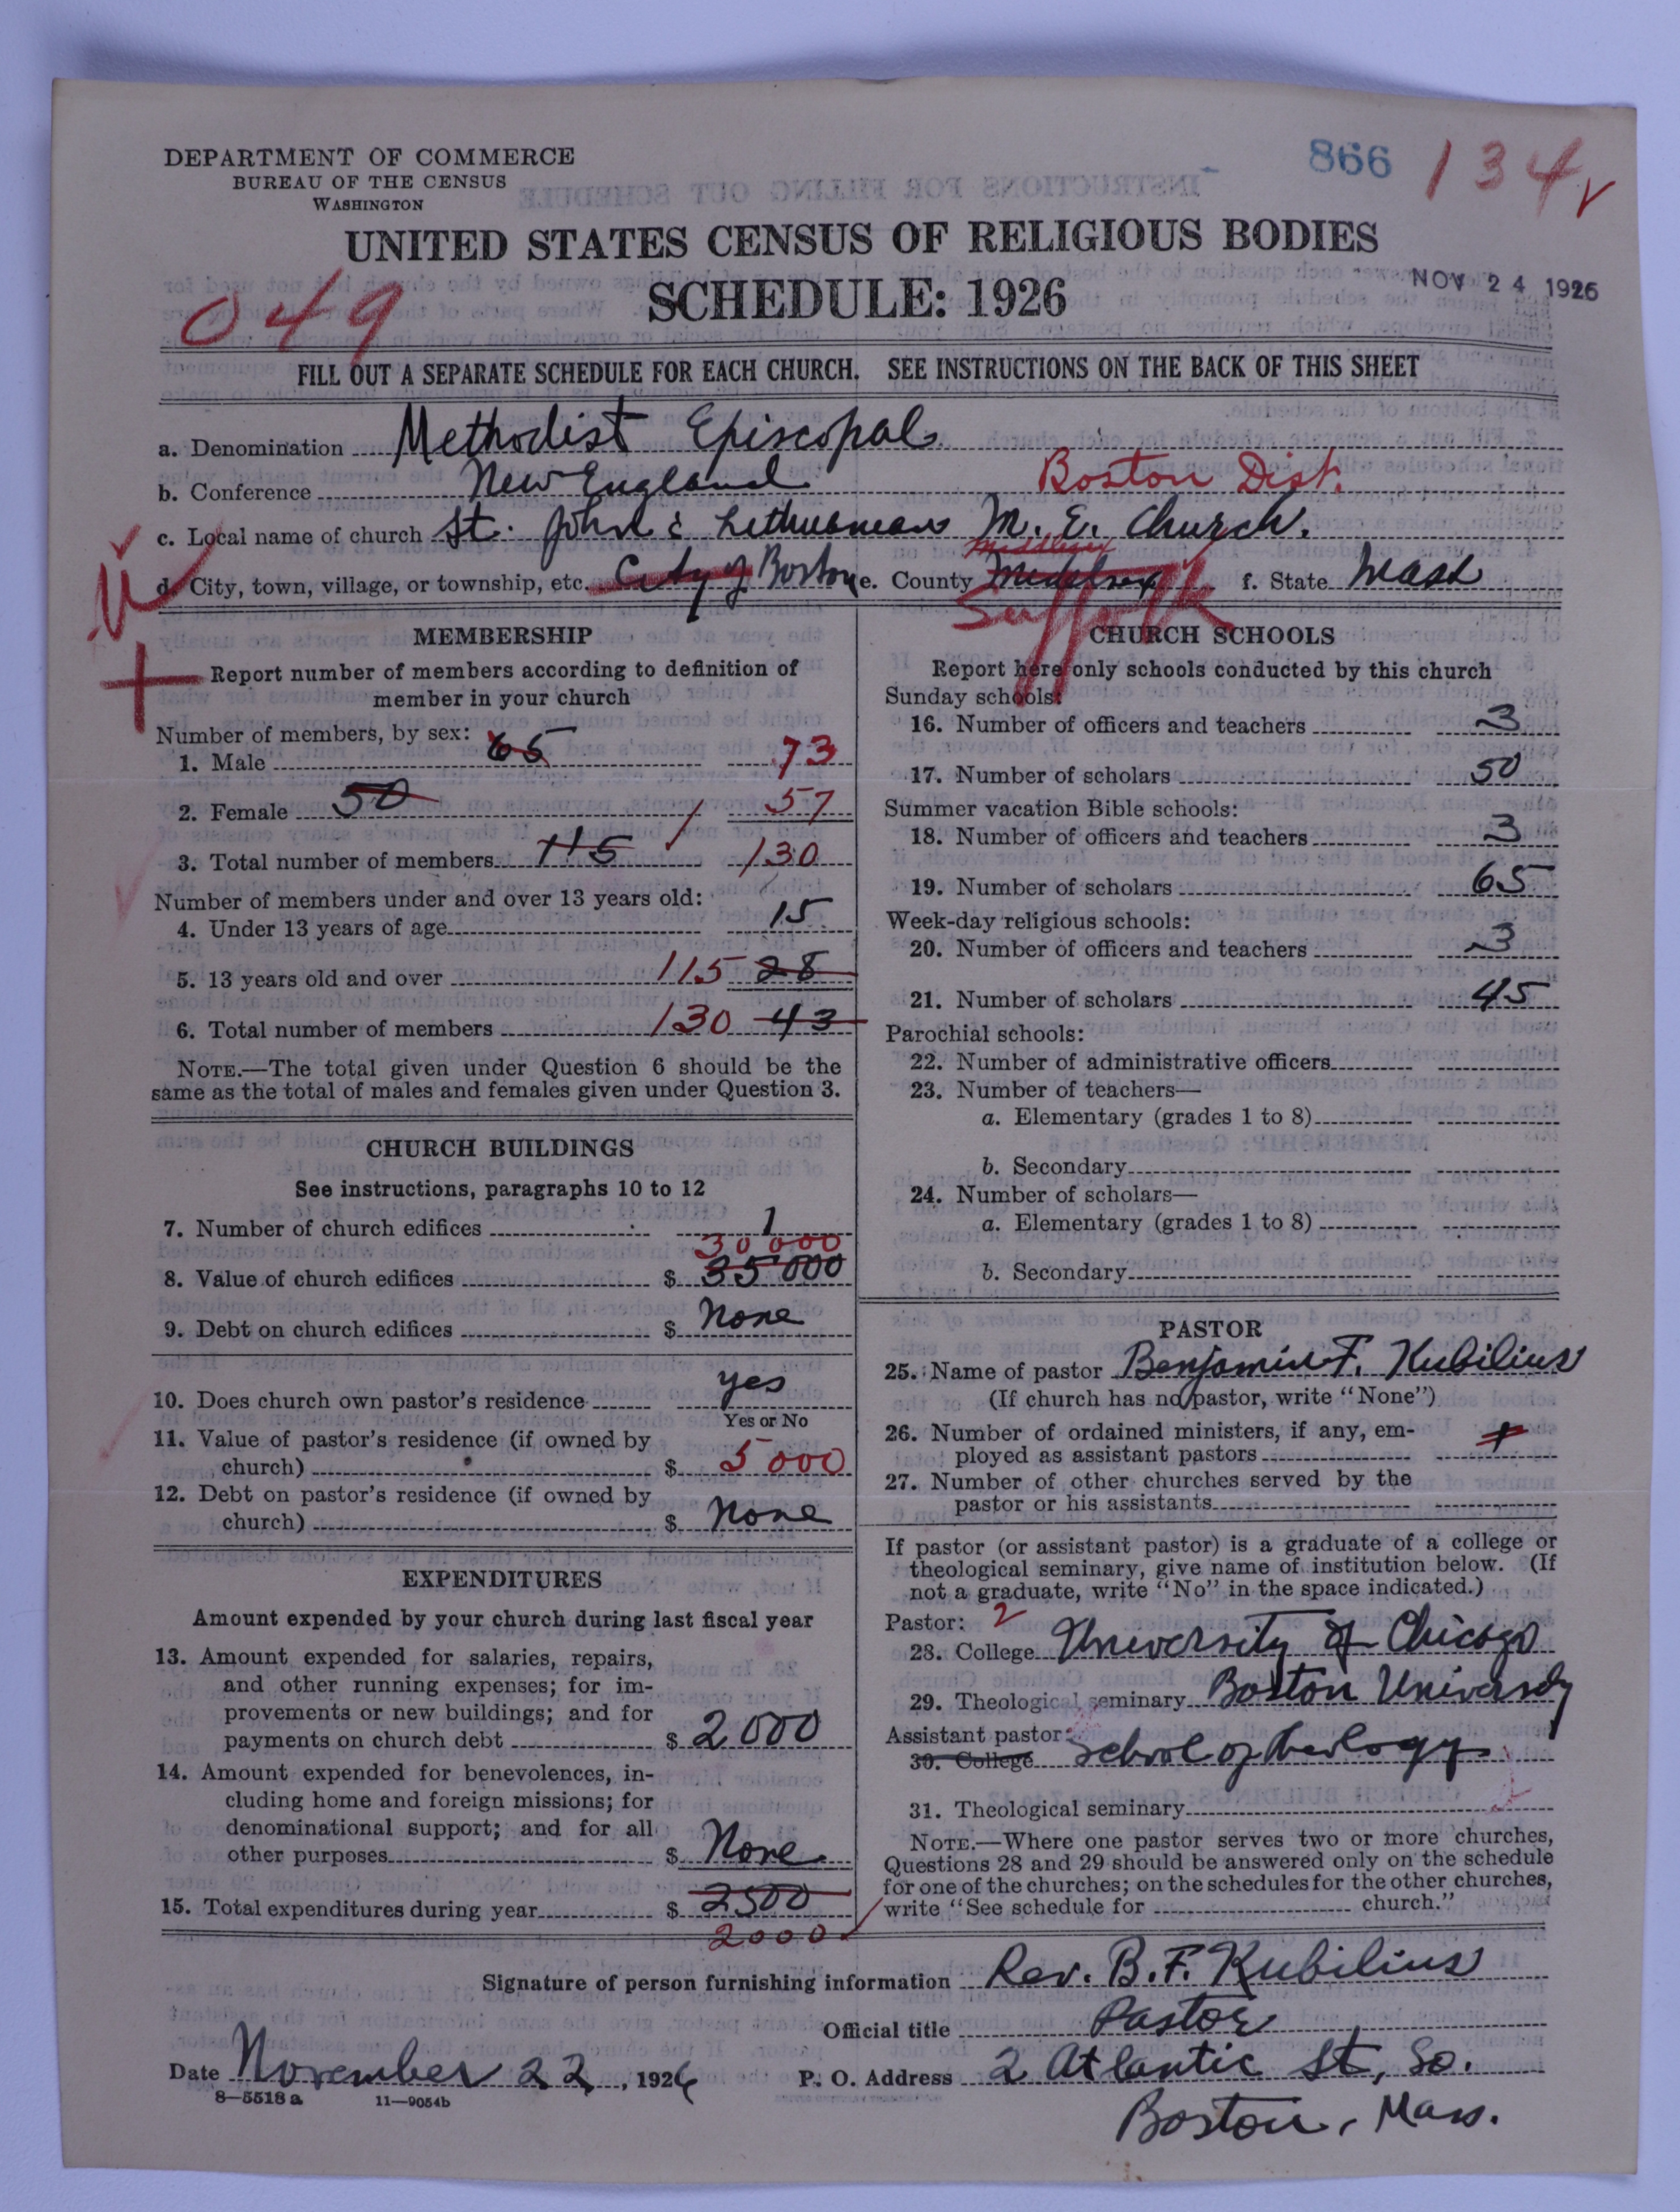 DEPARTMENT OF COMMERCE
BUREAU OF THE CENSUS
WASHINGTON
866 134
UNITED STATES CENSUS OF RELIGIOUS BODIES
SCHEDULE: 1926
NOV 24 1926
049
FILL OUT A SEPARATE SCHEDULE FOR EACH CHURCH. SEE INSTRUCTIONS ON THE BACK OF THIS SHEET
a. Denomination Methodist Episcopal
b. Conference New England Boston Dist.
c. Local name of church St. John's Lithuanian M. E. Church.
Middlesex
d. City, town, village, or township, etc. City of Boston e. County Middlesex f. State Mass
Suffolk
MEMBERSHIP
Report number of members according to definition of
member in your church
Number of members, by sex:
1. Male 65 73
2. Female 50 57
3. Total number of members 115 130
Number of members under and over 13 years old:
4. Under 13 years of age 15
5. 13 years old and over 115 28
6. Total number of members 130 43
NOTE.—The total given under Question 6 should be the
same as the total of males and females given under Question 3.
CHURCH BUILDINGS
See instructions, paragraphs 10 to 12
7. Number of church edifices 1
30 000
8. Value of church edifices $ 35 000
9. Debt on church edifices $ None
10. Does church own pastor's residence yes
Yes or No
11. Value of pastor's residence (if owned by
church) $ 5 000
12. Debt on pastor's residence (if owned by
church) $ None
EXPENDITURES
Amount expended by your church during last fiscal year
13. Amount expended for salaries, repairs,
and other running expenses; for im-
provements or new buildings; and for
payments on church debt $ 2000
14. Amount expended for benevolences, in-
cluding home and foreign missions; for
denominational support; and for all
other purposes $ None
15. Total expenditures during year $ 2500
2000
CHURCH SCHOOLS
Report here only schools conducted by this church
Sunday schools:
16. Number of officers and teachers 3
17. Number of scholars 50
Summer vacation Bible schools:
18. Number of officers and teachers 3
19. Number of scholars 65
Week-day religious schools:
20. Number of officers and teachers 3
21. Number of scholars 45
Parochial schools:
22. Number of administrative officers
23. Number of teachers—
a. Elementary (grades 1 to 8)
b. Secondary
24. Number of scholars—
a. Elementary (grades 1 to 8)
b. Secondary
PASTOR
25. Name of pastor Benjamin F. Kubilius
(If church has no pastor, write "None")
26. Number of ordained ministers, if any, em-
ployed as assistant pastors 1
27. Number of other churches served by the
pastor or his assistants
If pastor (or assistant pastor) is a graduate of a college or
theological seminary, give name of institution below. (If
not a graduate, write "No" in the space indicated.)
Pastor: 2
28. College University of Chicago
29. Theological seminary Boston University
Assistant pastor:
30. College School of theology
31. Theological seminary
NOTE.—Where one pastor serves two or more churches,
Questions 28 and 29 should be answered only on the schedule
for one of the churches; on the schedules for the other churches,
write "See schedule for church."
Signature of person furnishing information Rev. B. F. Kubilius
Official title Pastor
Date November 22, 1926 P. O. Address 2 Atlantic St, So.
8—5518 a 11—9054b
Boston, Mass.